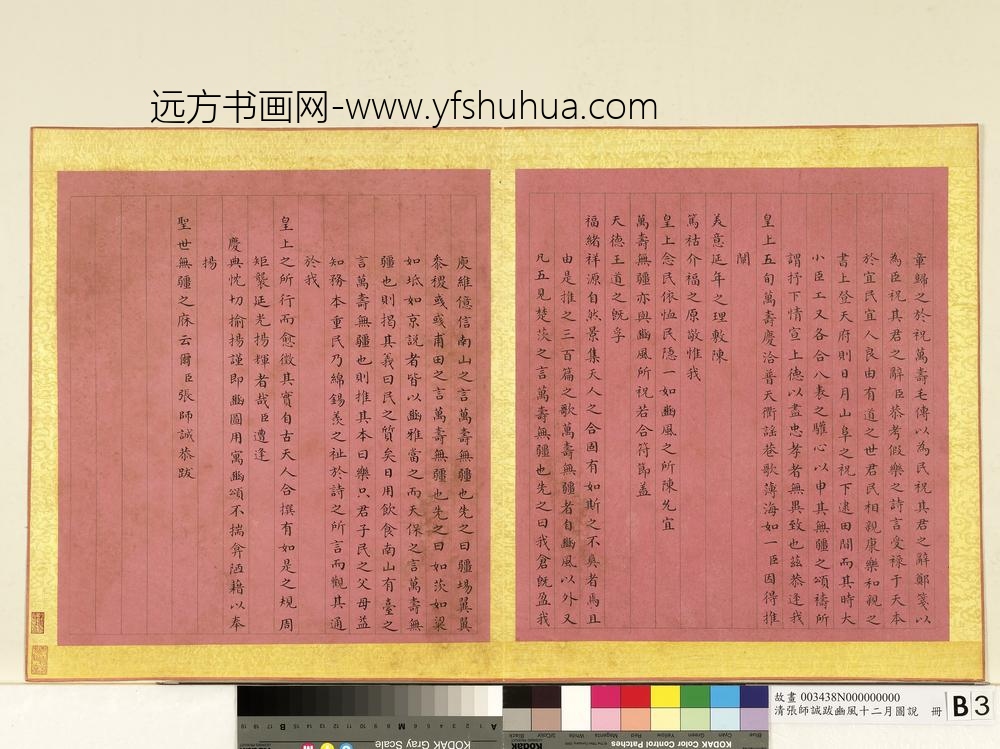 远方书画网-www.yfshuhua.com
章歸之於祝萬壽毛傳以為民祝其君之辭鄭箋以
為臣祝其君之辭臣恭考假樂之詩言受祿于天本
於宜民宜人良由有道之世君民相親康樂和親之
書上登天府則日月山阜之祝下逮田間而其時大
小臣工又各合八表之驩心以申其無疆之頌禱所
謂抒下情宣上德以盡忠孝者無異致也茲恭逢我
皇上五旬萬壽慶洽普天衢謠巷歌薄海如一臣因得推
闡
美意延年之理敷陳
篤祜介福之原敬惟我
皇上念民依恤民隱一如豳風之所陳允宜
萬壽無疆亦與豳風所祝若合符節蓋
天德王道之既孚
福緒祥源自然景集天人之合固有如斯之不爽者焉且
由是推之三百篇之歌萬壽無疆者自豳風以外又
凡五見楚茨之言萬壽無疆也先之曰我倉既盈我
庾維億信南山之言萬壽無疆也先之曰疆埸翼翼
黍稷彧彧甫田之言萬壽無疆也先之曰如茨如梁
如坻如京說者皆以豳雅當之而天保之言萬壽無
疆也則揭其義曰民之質矣日用飲食南山有臺之
言萬壽無疆也則推其本曰樂只君子民之父母益
知務本重民乃綿錫羨之祉於詩之所言而觀其通
於我
皇上之所行而愈徵其實自古天人合撰有如是之規周
矩襲延光揚輝者哉臣遭逢
慶典忱切揄揚謹即豳圖用寓豳頌不揣弇陋藉以奉
揚
聖世無疆之庥云爾臣張師誠恭跋
故畫 003438N000000000
清張師誠跋豳風十二月圖說 冊
B 3
KODAK Gray Scale
KODAK Color Control Patches